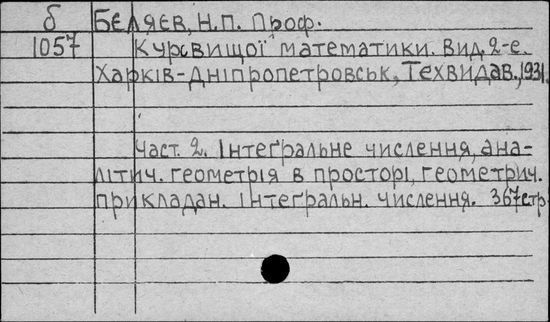 б Бєляєв, Н.П. Проф.
1057 Курс вищої математики. Вид. 2-е.
Харків-Дніпропетровськ, Техвидав., 1931.
Част. 2. Інтеґральне числення, ана-
літич. геометрія в просторі, геометрич.
прикладан. інтеґральн. числення. 367 стр.